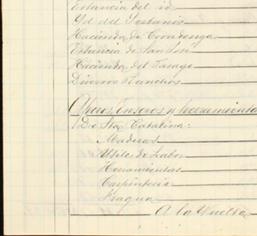 Estancia del id.
Id del Sertanio
Hacienda de Covadonga
Estancia de San José
Hacienda del Fargo
Diversos Ranchos
Aperos, Enseres y herramientas
Do Sta Catalina:
Maderas
Utiles de Labor
Herramientas
Carpintería
Fragua
A la Vuelta